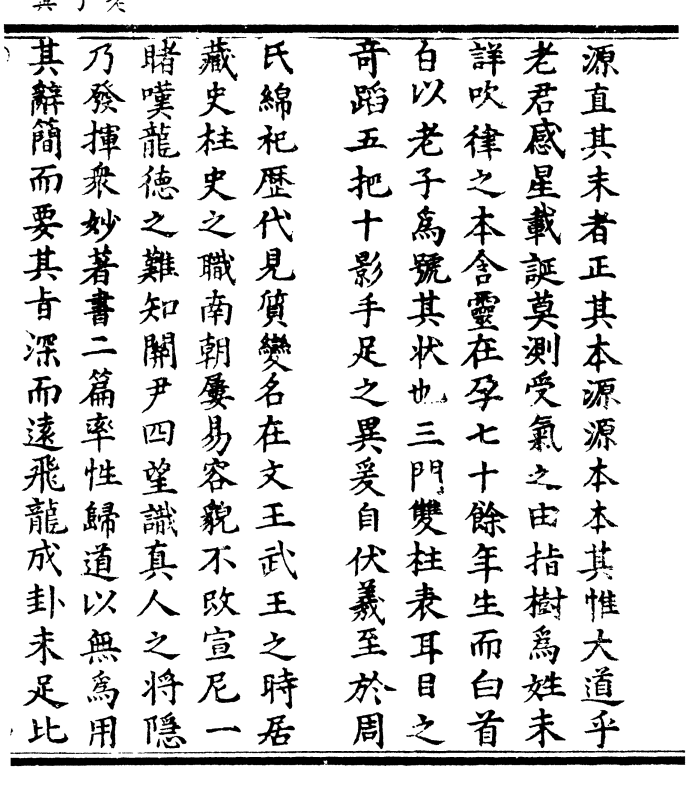 源直其末者正其本源源本本其惟大道乎
老君感星載誕莫測受氣之由指樹爲姓未
詳吹律之本含靈在孕七十餘年生而白首
自以老子爲號其狀也三門雙柱表耳目之
竒蹈五把十影手足之異爰自伏羲至於周
氏綿祀歴代見質變名在文王武王之時居
藏史柱史之職南朝屢易容貌不改宣尼一
睹嘆龍德之難知關尹四望識真人之將隱
乃發揮衆妙著書二篇率性歸道以無爲用
其辭簡而要其旨深而遠飛龍成卦未足比